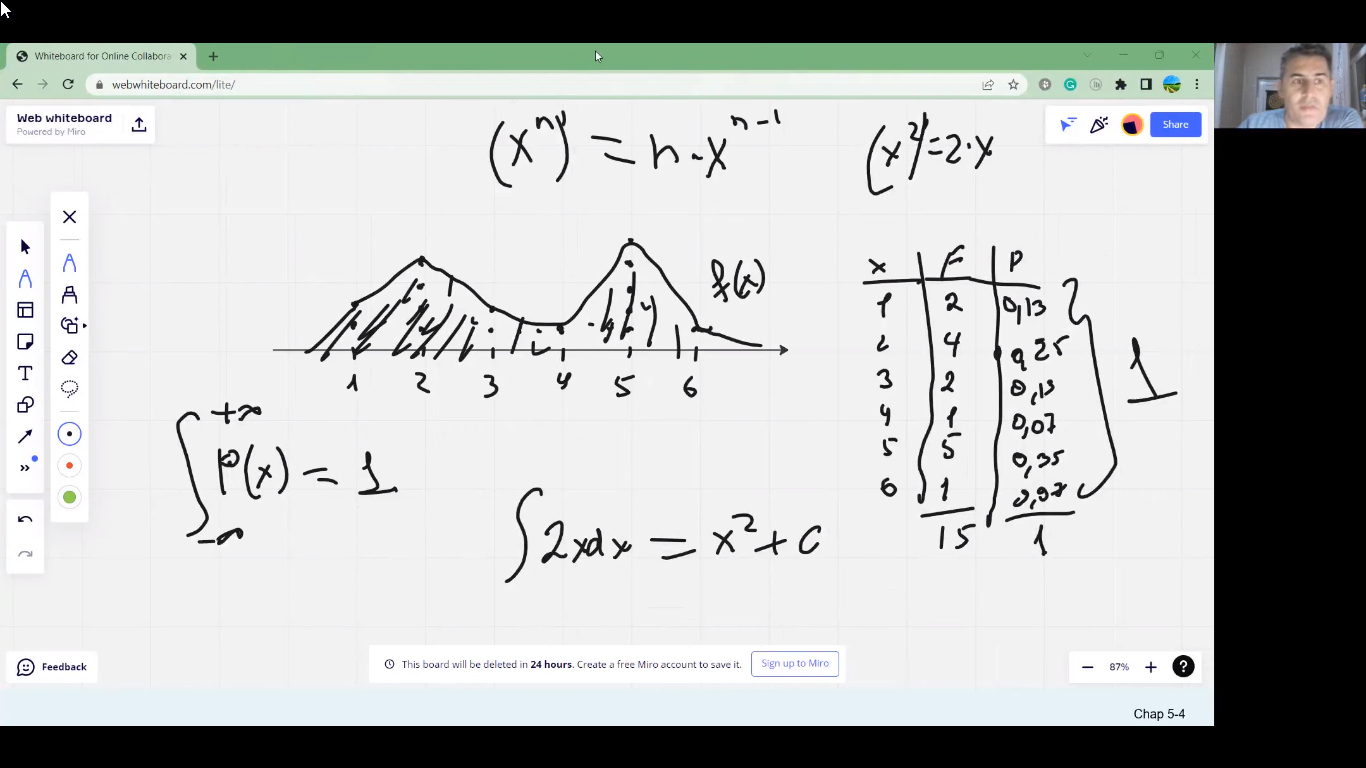 Whiteboard for Online Collabora
webwhiteboard.com/lite/
Web whiteboard
Powered by Miro
Share
(xⁿ)' = n · xⁿ⁻¹
(x²)' = 2·x
f(x)
1 2 3 4 5 6
x F P
1 2 0,13
2 4 0,25
3 2 0,13
4 1 0,07
5 5 0,35
6 1 0,07
15 1
1
+∞
∫ P(x) = 1
-∞
∫ 2xdx = x² + C
Feedback
This board will be deleted in 24 hours. Create a free Miro account to save it.
Sign up to Miro
87%
Chap 5-4